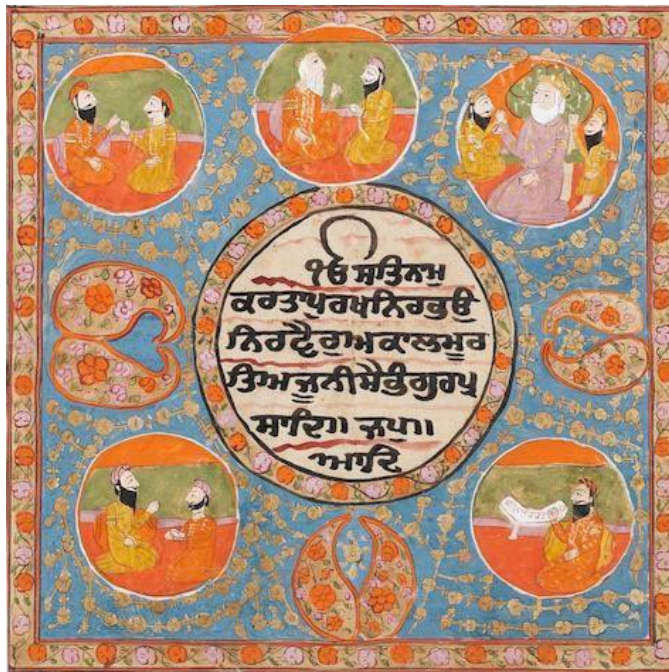 ੴ ਸਤਿਨਾਮ
ਕਰਤਾਪੁਰਖਨਿਰਭਉ
ਨਿਰਵੈਰੁਅਕਾਲਮੂਰ
ਤਿਅਜੂਨੀਸੈਭੰਗੁਰਪ੍ਰ
ਸਾਦਿ॥ ਜਪੁ॥
ਆਦਿ